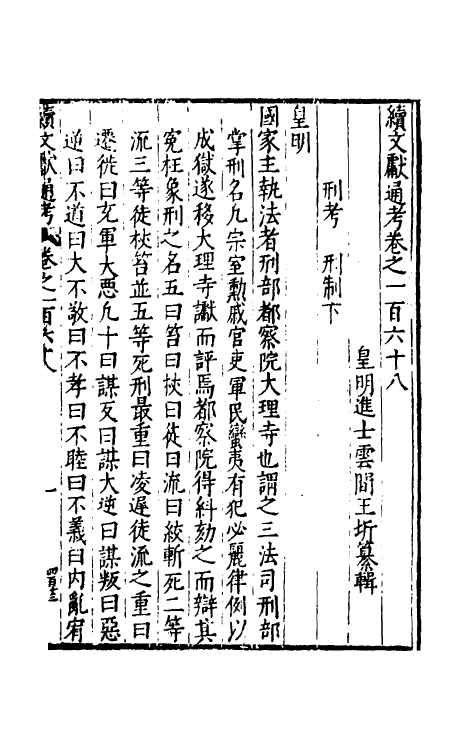 續文獻通考卷之一百六十八
皇明進士雲間王圻纂輯
刑考　刑制下
皇明
國家主執法者刑部都察院大理寺也謂之三法司刑部
掌刑名凢宗室勲戚官吏軍民蠻夷有犯必麗律例以
成獄遂移大理寺讞而評焉都察院得糾劾之而辯其
冤枉象刑之名五曰笞曰杖曰徒曰流曰絞斬死二等
流三等徒杖笞並五等死刑最重曰凌遲徒流之重曰
遷徙曰充軍大悪凢十曰謀反曰謀大逆曰謀叛曰惡
逆曰不道曰大不敬曰不孝曰不睦曰不義曰内亂宥
續文獻通考 卷之一百六十八
一